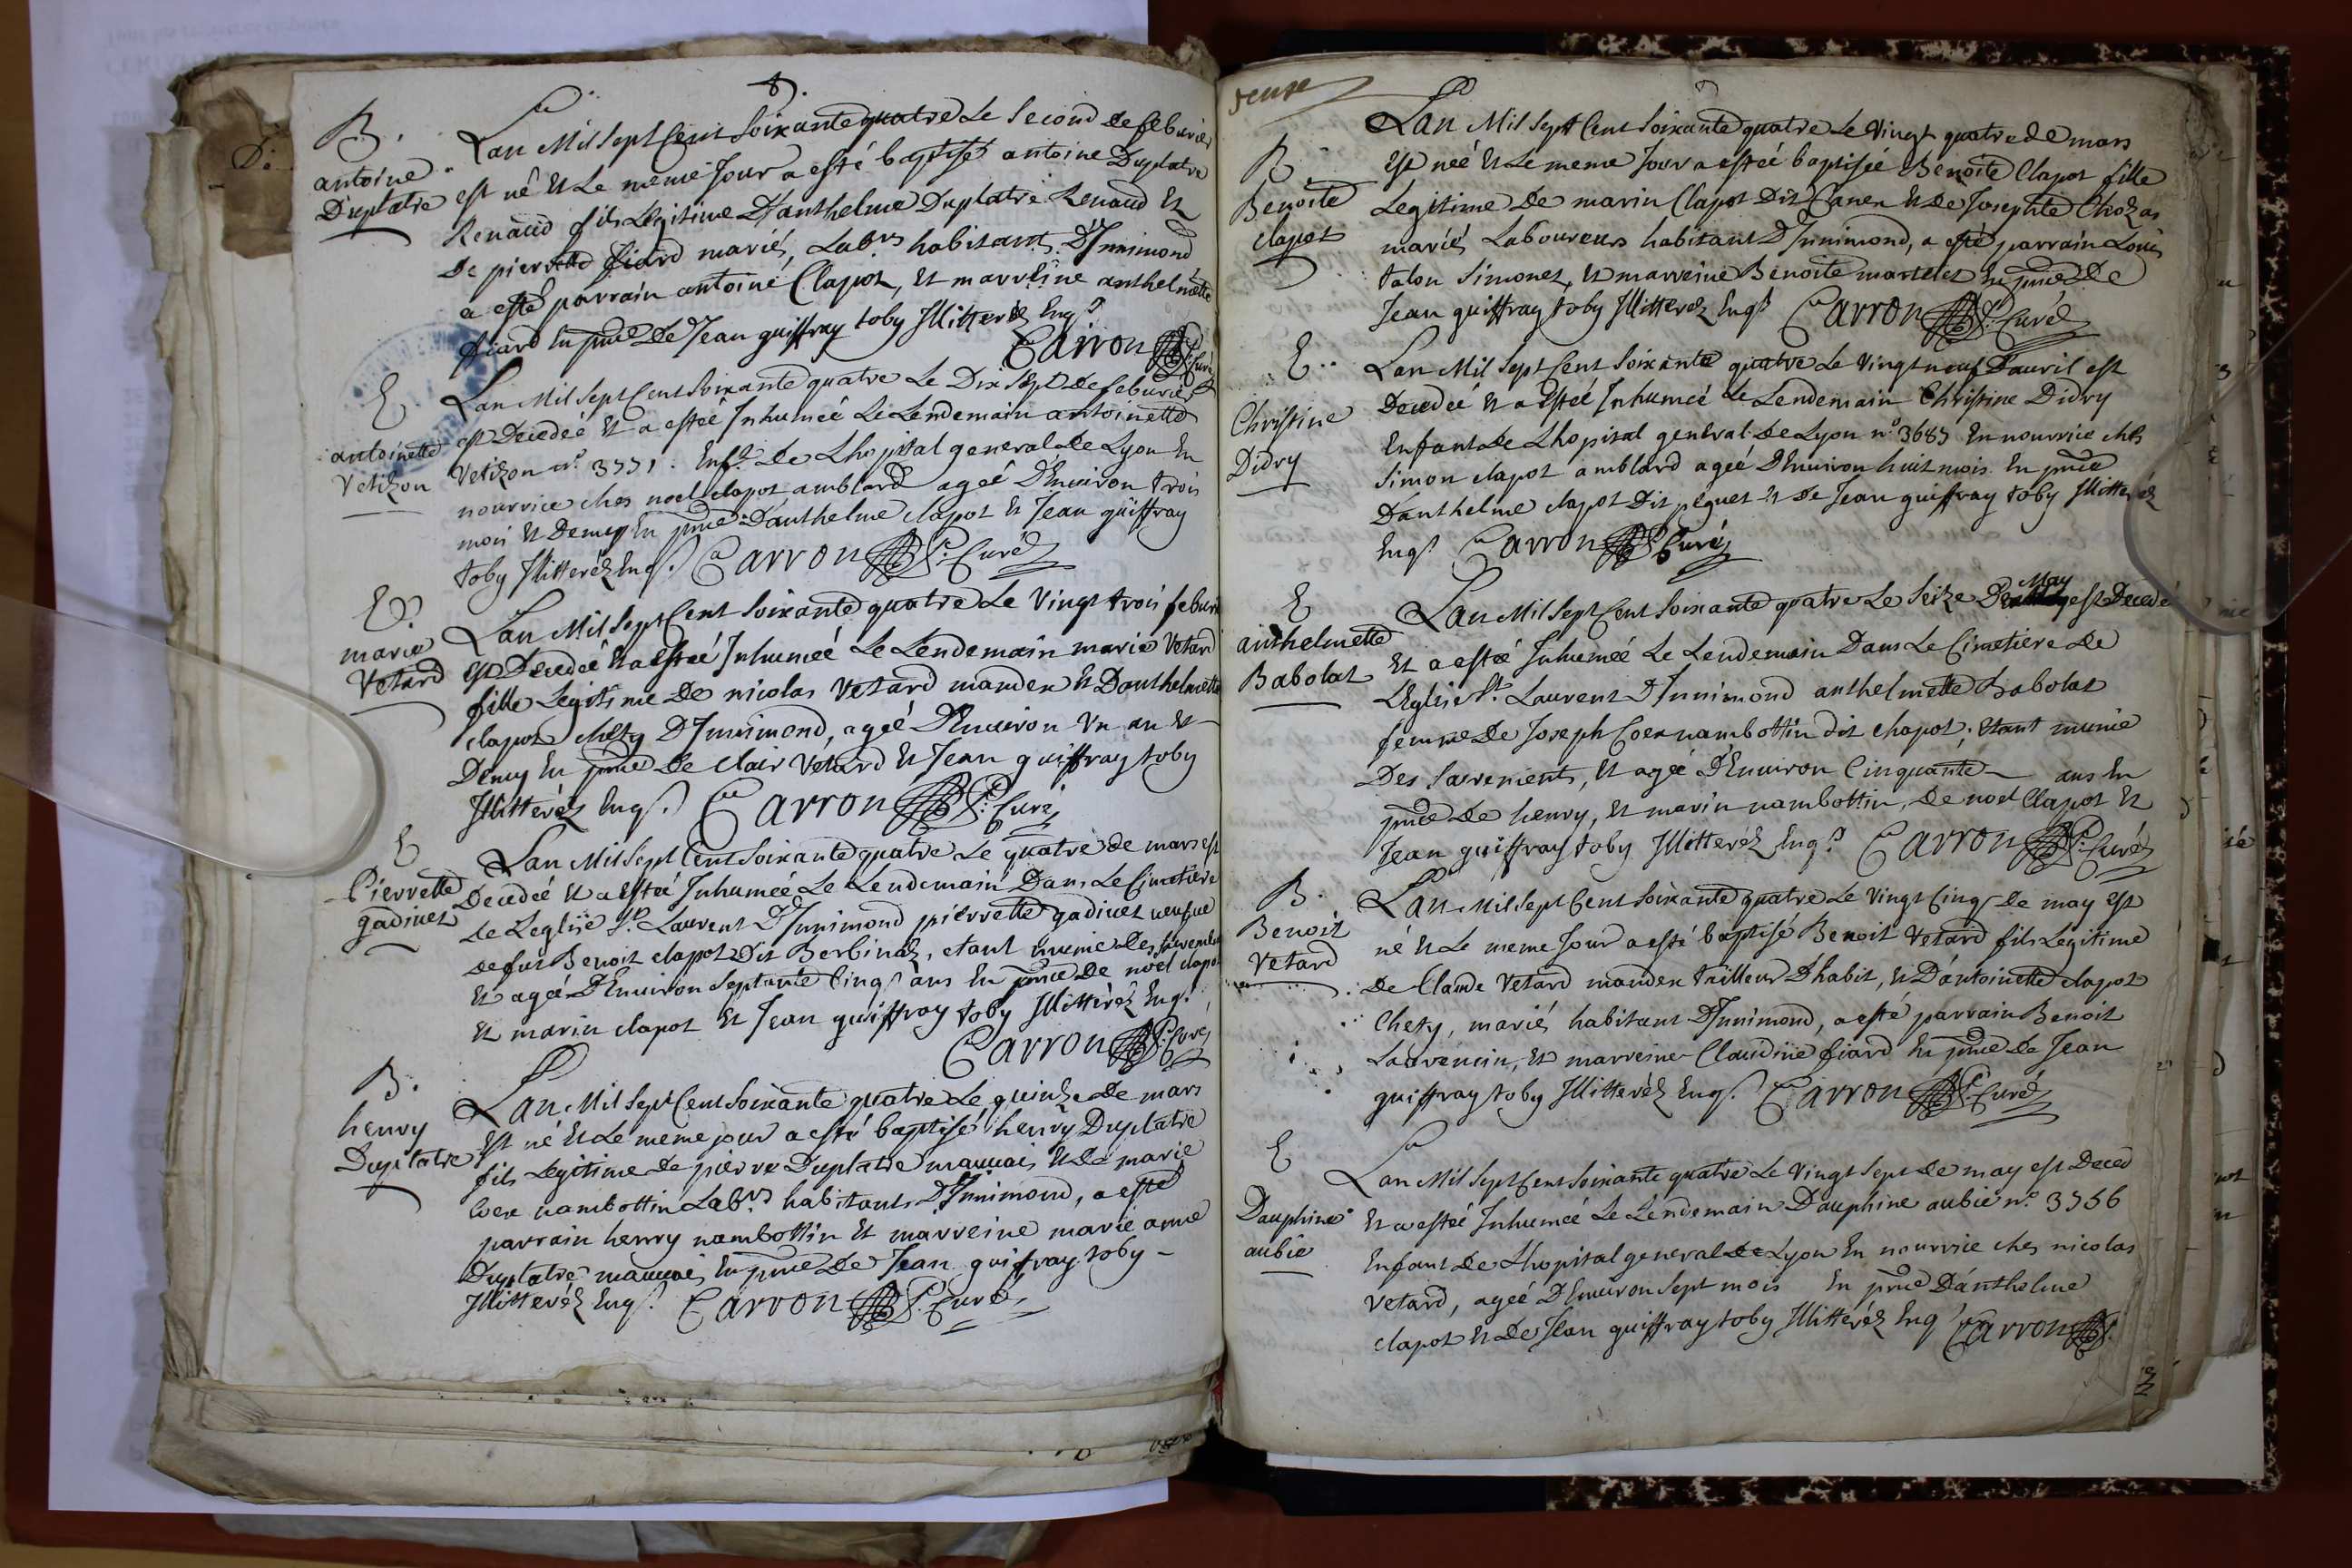 B.
antoine
Duplatre
Lan Mil Sept Cent Soixante quatre Le Second de feburier
est né Et Le meme Jour a esté baptisé antoine Duplatre
Renaud fils Legitime D'anthelme Duplatre Renaud Et
De pierrette fiard mariés, Labrs habitants D'Innimond
a esté parrain antoine Clapot, Et marreine anthelmette
fiard En pnce De Jean guiffray toby Illitterés Enqs
Carron Curé
E
antoinette
Vetizon
Lan Mil Sept Cent Soixante quatre Le Dix Sept De feburier
est Decedeé Et a esteé Inhumeé Le Lendemain antoinette
Vetizon no. 3771. Enft De Lhopital general De Lyon En
nourrice ches noel clapot amblard ageé D'Enuiron trois
mois Et Demy En pnce D'anthelme clapot Et Jean guiffray
toby Illitteréz Enqs. Carron Curé
E
marie
Vetard
Lan Mil Sept Cent Soixante quatre Le Vingt trois feburi
est Decedeé Et a esteé Inhumeé Le Lendemain marie Vetard
fille Legitime De nicolas Vetard manden Et D'anthelmette
clapot chety D'Innimond, ageé D'Enuiron Vn an Et
Demy En pnce De clair Vetard Et Jean guiffray toby
Illitteréz Enqs. Carron Curé
E
Pierrette
gadinet
Lan Mil Sept Cent Soixante quatre Le quatre de mars est
Decedeé Et a esteé Inhumeé Le Lendemain Dans Le Cimetiere
de Leglise St. Laurent D'Innimond pierrette gadinet veufue
de fut Benoit clapot Dit Berbinaz, etant munie des sacrements
Et ageé D'Enuiron Septante Cinq ans En pnce De noel clapot
Et marin clapot Et Jean guiffray toby Illitteréz Enqs.
Carron Curé
B.
henry
Duplatre
Lan Mil Sept Cent Soixante quatre Le quinze De mars
est né Et Le meme jour a esté baptisé henry Duplatre
fils Legitime De pierre Duplatre mauuais Et De marie
Coex nambottin Labrs habitants D'Innimond, a esté
parrain henry nambottin Et marreine marie anne
Duplatre mauuais En pnce De Jean guiffray toby
Illitteréz Enqs. Carron Curé
B.
Benoite
clapot
Lan Mil Sept Cent Soixante quatre Le Vingt quatre de mars
est neé Et Le meme Jour a esteé baptiseé Benoite Clapot fille
Legitime De marin Clapot Dit Canen Et De Josephte Chozas
mariés Laboureurs habitant D'Innimond, a esté parrain Louis
talon Simonet, Et marreine Benoite martelet En pnce De
Jean guiffray toby Illitteréz Enqs Carron Curé
E
Christine
Didry
Lan Mil Sept Cent Soixante quatre Le Vingt neuf D'auril est
Decedeé Et a Esteé Inhumeé Le Lendemain Christine Didry
Enfant De Lhopital general De Lyon no. 3685 En nourrice chés
Simon clapot amblard ageé D'Enuiron huit mois En pnce
D'anthelme clapot Dit péguet Et De Jean guiffray toby Illitteréz
Enqs Carron Curé
E
anthelmette
Babolat
Lan Mil Sept Cent Soixante quatre Le Seize De May est Decedé
Et a esteé Inhumeé Le Lendemain Dans Le Cimetiere De
L'Eglise St. Laurent D'Innimond anthelmette Babolat
femme De Joseph Coex nambottin dit chapot; etant munie
Des Sacrements, Et ageé D'Enuiron Cinquante ans En
pnce De henry, Et marin nambottin, De noel Clapot Et
Jean guiffray toby Illitteréz Enqs Carron Curé
B.
Benoit
Vetard
Lan Mil Sept Cent Soixante quatre Le Vingt Cinq De may est
né Et Le meme Jour a esté baptisé Benoit Vetard fils Legitime
De Claude Vetard manden tailleur D'habit, Et D'antoinette clapot
Chety, mariés habitant D'Innimond, a esté parrain Benoit
Lauvencin, Et marreine Claudine fiard En pnce De Jean
guiffray toby Illitteréz Enqs. Carron Curé
E
Dauphine
aubie
Lan Mil Sept Cent Soixante quatre Le Vingt Sept De may est Deced
Et a esteé Inhumeé Le Lendemain Dauphine aubie no. 3756
Enfant De Lhopital general De Lyon En nourrice ches nicolas
Vetard, ageé D'Enuiron Sept mois En pnce D'anthelme
clapot Et De Jean guiffray toby Illitteréz Enqs Carron